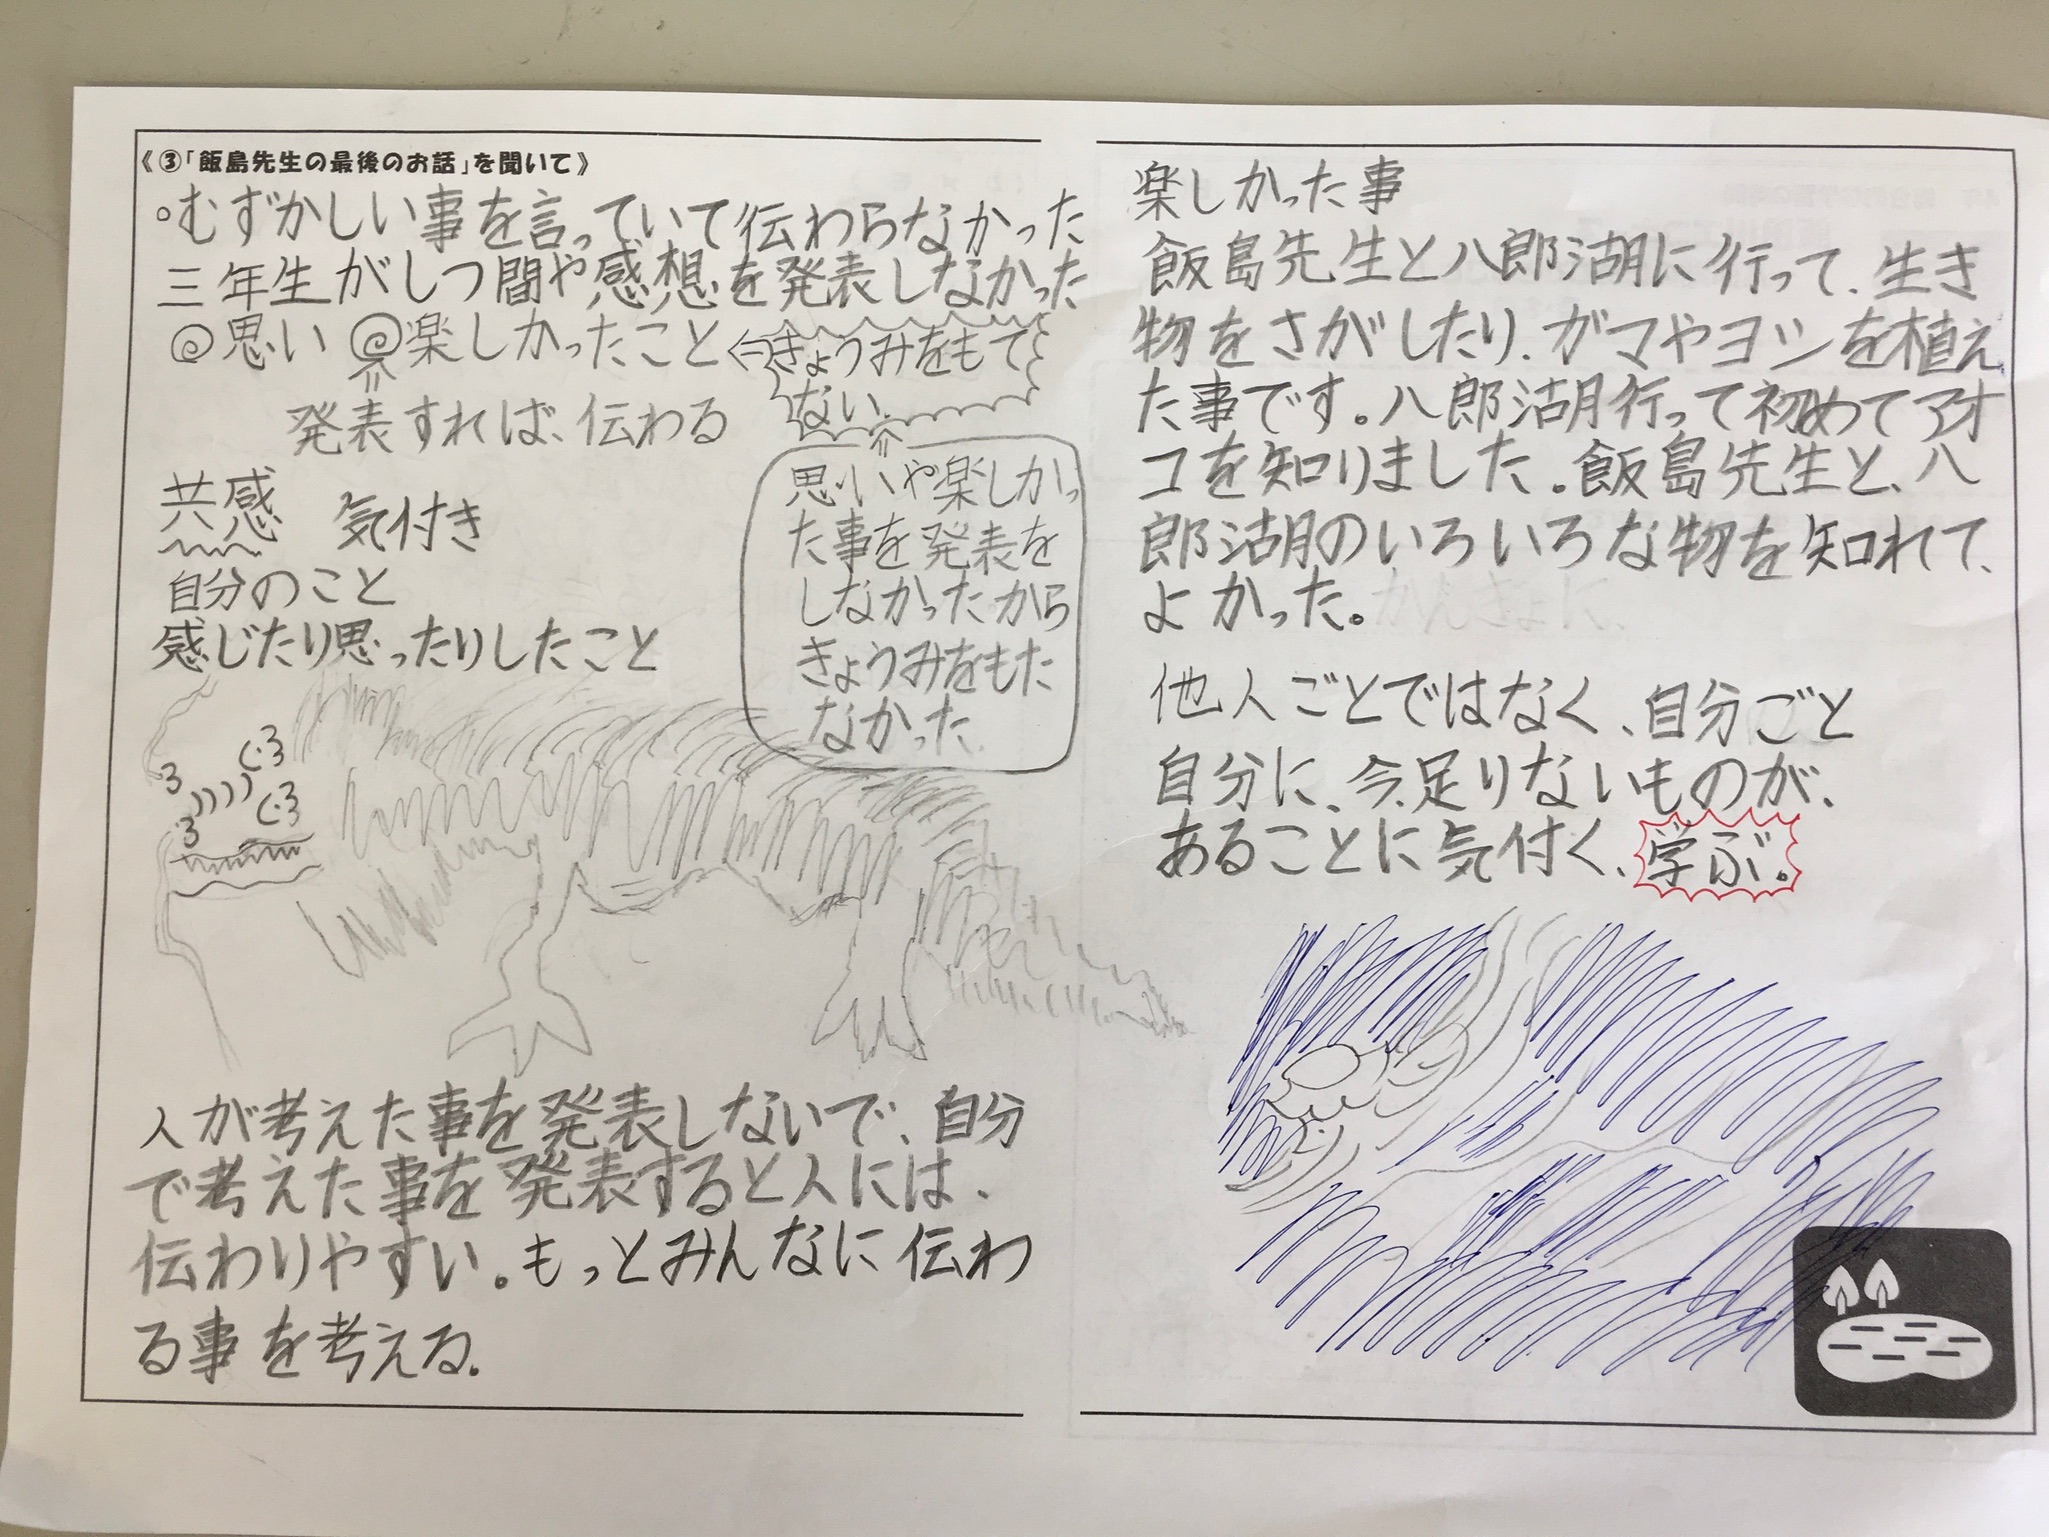 《③「飯島先生の最後のお話」を聞いて》
。むずかしい事を言っていて伝わらなかった
三年生がしつ問や感想を発表しなかった
◎思い ◎楽しかったこと⇔きょうみをもて
ない
発表すれば、伝わる
共感 気付き
自分のこと
感じたり思ったりしたこと
思いや楽しかっ
た事を発表を
しなかったから
きょうみをもた
なかった
人が考えた事を発表しないで、自分
で考えた事を発表すると人には、
伝わりやすい。もっとみんなに伝わ
る事を考える。
楽しかった事
飯島先生と八郎湖に行って、生き
物をさがしたり、ガマやヨシを植え
た事です。八郎湖行って初めてアオ
コを知りました。飯島先生と、八
郎湖のいろいろな物を知れて、
よかった。
他人ごとではなく、自分ごと
自分に、今足りないものが、
あることに気付く、学ぶ。